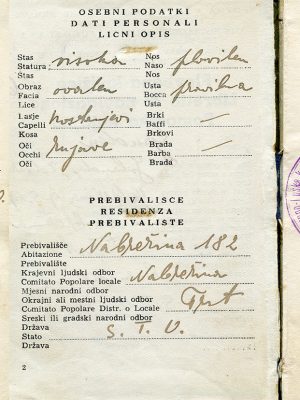 OSEBNI PODATKI
DATI PERSONALI
LICNI OPIS
Stas
Statura visoka
Stas
Nos
Naso
Nos
Obraz
Facia ovalen
Lice
Usta
Bocca pravilna
Usta
Lasje
Capelli kostanjevi
Kosa
Brki
Baffi —
Brkovi
Oči
Occhi rujave
Oči
Brada
Barba —
Brada
PREBIVALISCE
RESIDENZA
PREBIVALIŠTE
Prebivališče
Abitazione Nabrežina 182
Prebivalište
Krajevni ljudski odbor
Comitato Popolare locale Nabrežina
Mjesni narodni odbor
Okrajni ali mestni ljudski odbor
Comitato Popolare Distr. o Locale Trst
Sreski ili gradski narodni odbor
Država
Stato S. T. O.
Država
2